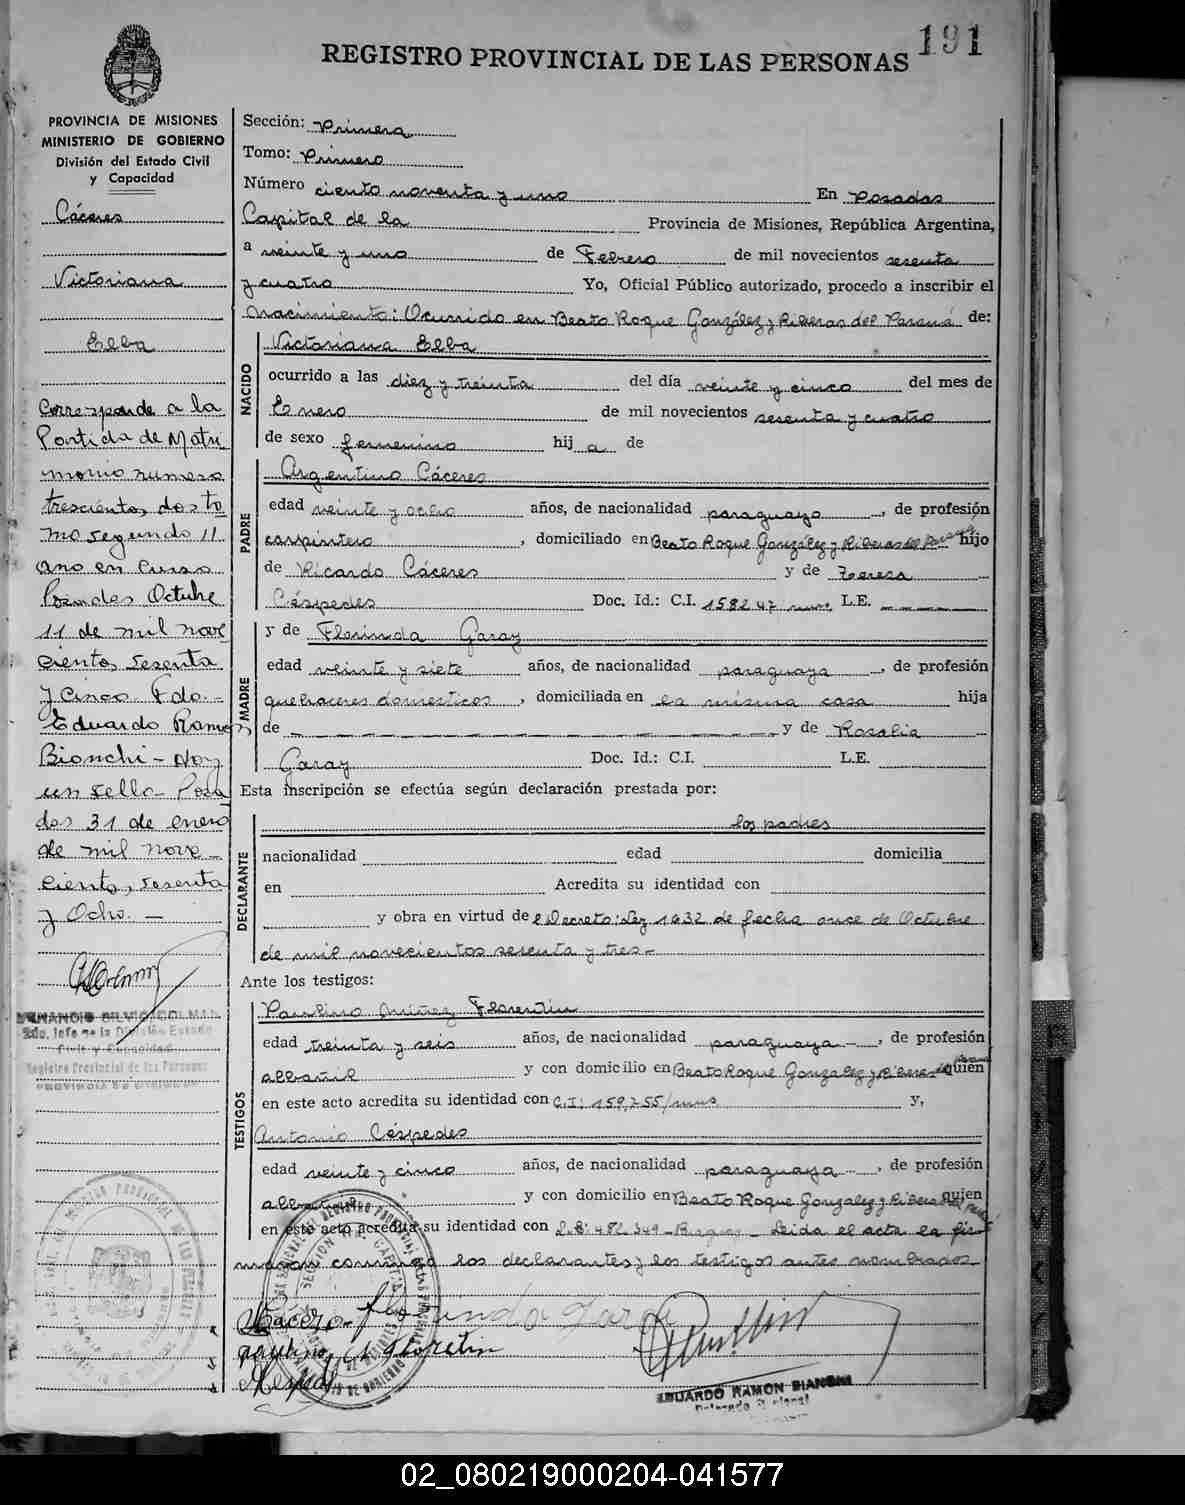 191
REGISTRO PROVINCIAL DE LAS PERSONAS
PROVINCIA DE MISIONES
MINISTERIO DE GOBIERNO
División del Estado Civil
y Capacidad
Cáceres
Victoriana
Elba
Corresponde a la
Partida de Matri
monio numero
trescientos dos to
mo segundo 11
ano en curso
Posadas Octubre
11 de mil nove
cientos sesenta
y cinco Fdo.-
Eduardo Ramon
Bianchi - Hay
un sello - Posa
das 31 de enero
de mil nove-
cientos, sesenta
y Ocho. -
2do. Jefe de la División Estado
Civil y Capacidad
Registro Provincial de las Personas
PROVINCIA DE MISIONES
Sección: Primera
Tomo: Primero
Número ciento noventa y uno En Posadas
Capital de la Provincia de Misiones, República Argentina,
a veinte y uno de Febrero de mil novecientos sesenta
y cuatro Yo, Oficial Público autorizado, procedo a inscribir el
Nacimiento: Ocurrido en Beato Roque González y Riberas del Paraná de:
NACIDO
Victoriana Elba
ocurrido a las diez y treinta del día veinte y cinco del mes de
Enero de mil novecientos sesenta y cuatro
de sexo femenino hij a de
PADRE
Argentino Cáceres
edad veinte y ocho años, de nacionalidad paraguayo, de profesión
carpintero, domiciliado en Beato Roque González y Riberas del Paraná hijo
de Ricardo Cáceres y de Teresa
Céspedes Doc. Id.: C.I. 158247 L.E. - - - -
MADRE
y de Florinda Garay
edad veinte y siete años, de nacionalidad paraguaya, de profesión
quehaceres domesticos, domiciliada en la misma casa hija
de - - - - y de Rosalia
Garay Doc. Id.: C.I. L.E.
Esta inscripción se efectúa según declaración prestada por:
DECLARANTE
los padres
nacionalidad edad domicilia
en Acredita su identidad con
y obra en virtud de Decreto: Ley 1632 de fecha once de Octubre
de mil novecientos sesenta y tres-
Ante los testigos:
TESTIGOS
Paulino Florentin
edad treinta y seis años, de nacionalidad paraguaya, de profesión
albañil y con domicilio en Beato Roque Gonzalez y Riberas quien
en este acto acredita su identidad con C.I: 159.755 y,
Antonio Céspedes
edad veinte y cinco años, de nacionalidad paraguaya, de profesión
albañil y con domicilio en Beato Roque Gonzalez y Riberas del quien
en este acto acredita su identidad con 482.349 - Leida el acta la fir
maron conmigo los declarantes y los testigos antes nombrados
A Cacero- florinda Garai
paulino N Floretin
EDUARDO RAMON BIANCHI
02_080219000204-041577